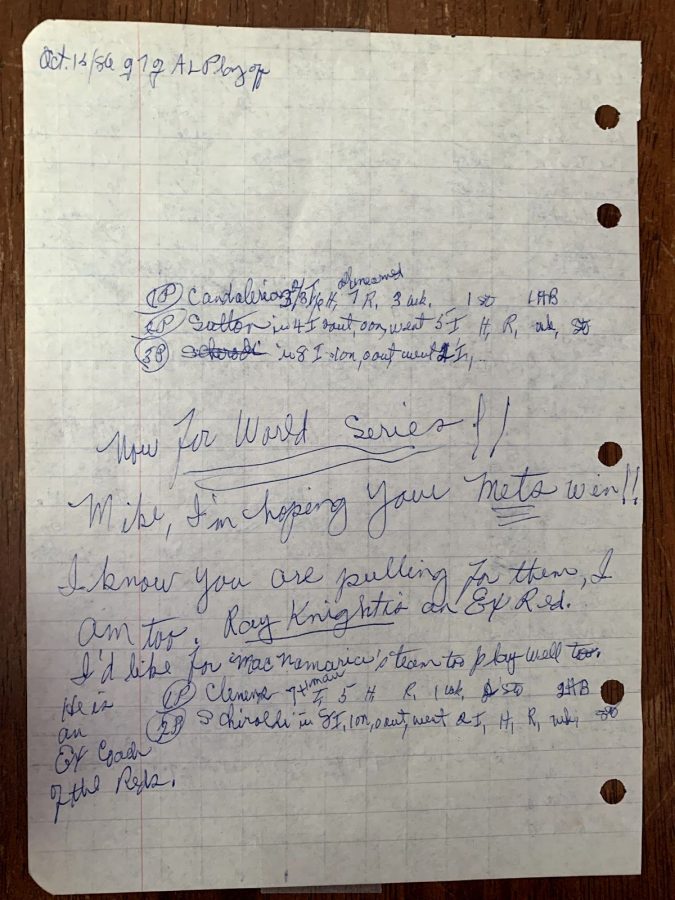 Oct. 15/86 g 7 of AL Playoff
unearned
1P Candaleria 3 1/3 I, 6 H, 7 R, 3 wk, 1 so 1 HB
2P Sutton in 4 I 2 out, 0 on, went 5 I H, R, wk, so
3P Schiraldi in 8 I 1 on, 0 out, went 2 I,
Now for World Series!!
Mike, I'm hoping your Mets win!!
I know you are pulling for them, I
am too. Ray Knight is an Ex Red.
I'd like for MacNamaria's team to play well too.
He is
an
Ex Coach
of the Reds.
1P Clemens 7+ 1 man I, 5 H R, 1 wk, so 2 HB
2P Schiraldi in 8 I, 1 on, 0 out, went 2 I, H, R, wk, so